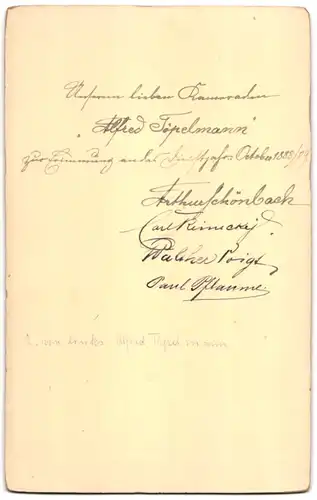 Unserem lieben Kameraden
"Alfred Töpelmann"
zur Erinnerung an das Dienstjahr October 1883/84
Arthur Schönbach
Carl Reinecke
Walther Voigt
Paul Pflaume
2. von links Alfred Töpelmann